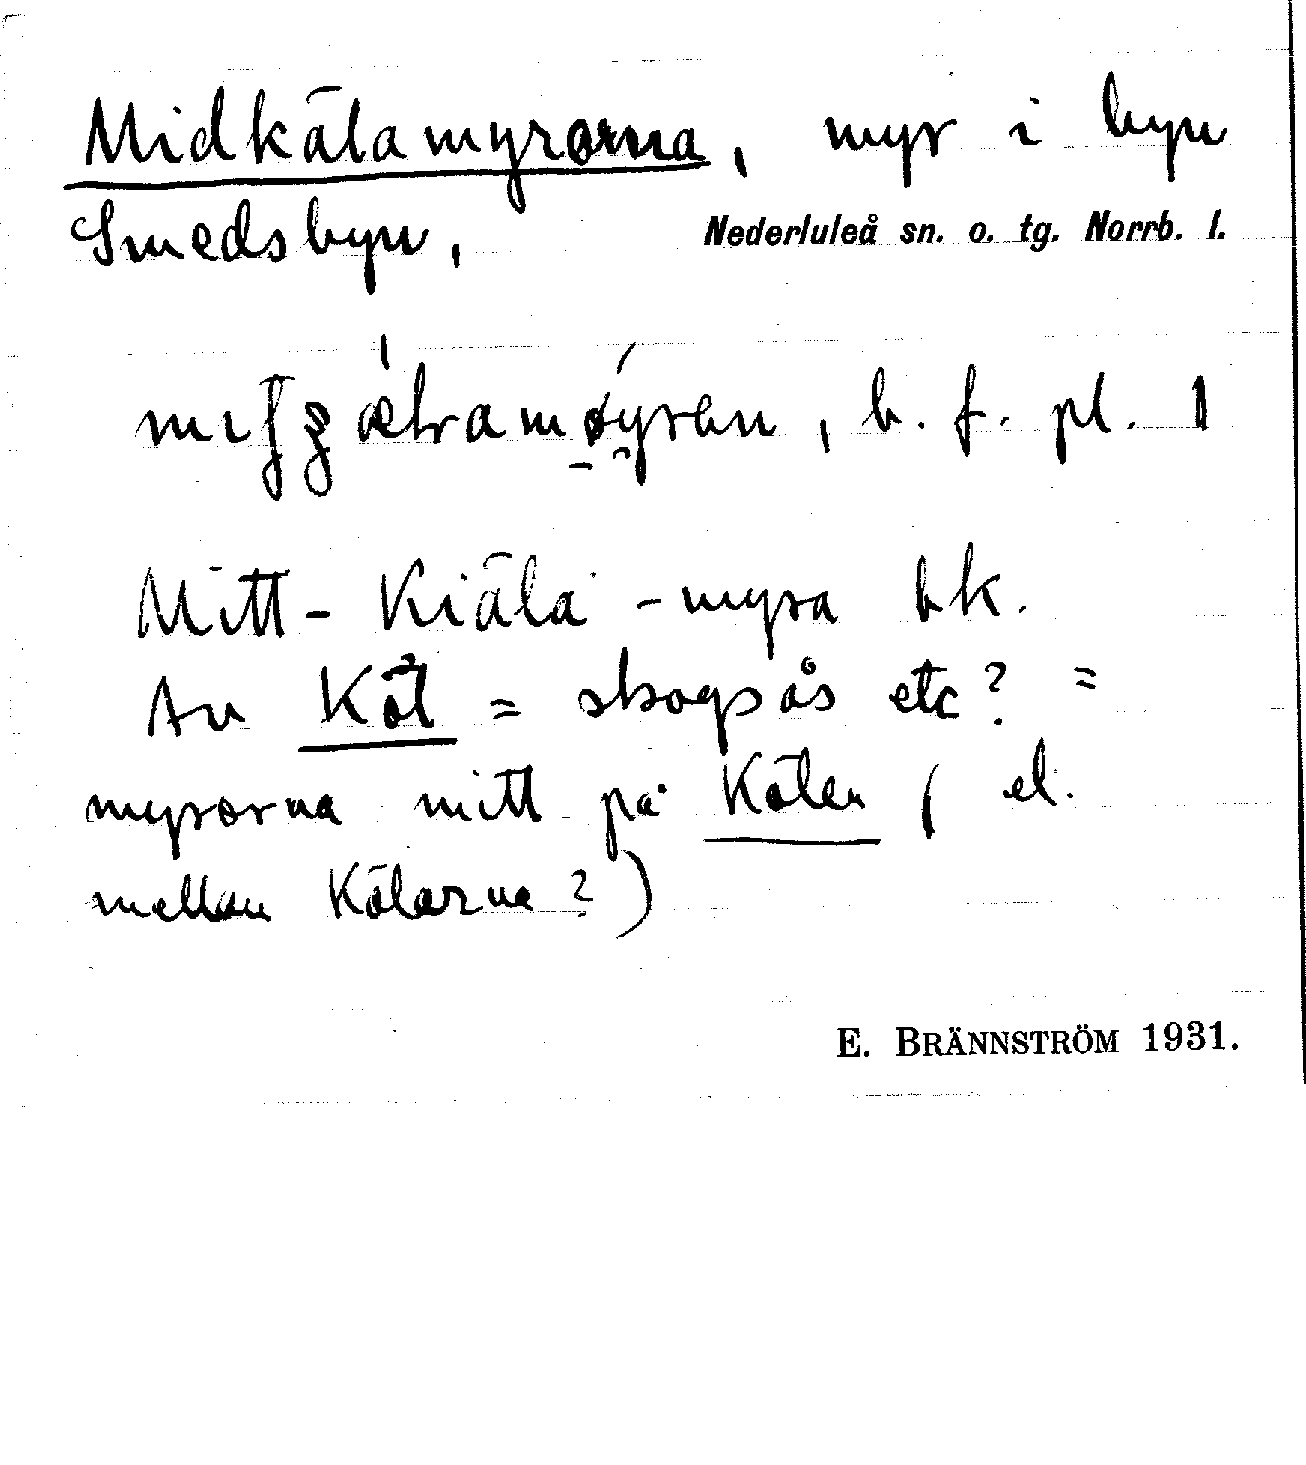 Midkälamyrorna, myr i byn
Smedsbyn, Nederluleå sn. o. tg. Norrb. l.
b. f. pl. 1
Mitt-Kiäla-myra bk.
Av Köl = skogsås etc? =
myrorna mitt på Kölen (el.
mellan Kölarna?)
E. BRÄNNSTRÖM 1931.